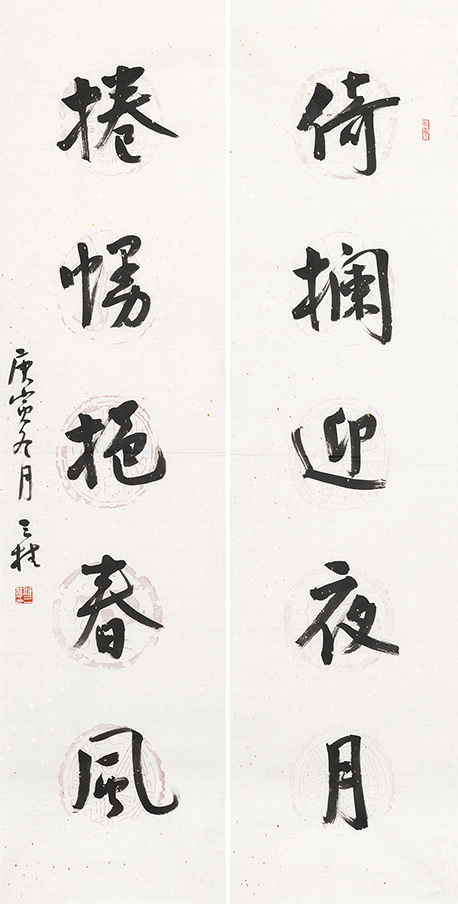 倚攔迎夜月
捲幔挹春風
庚寅冬月